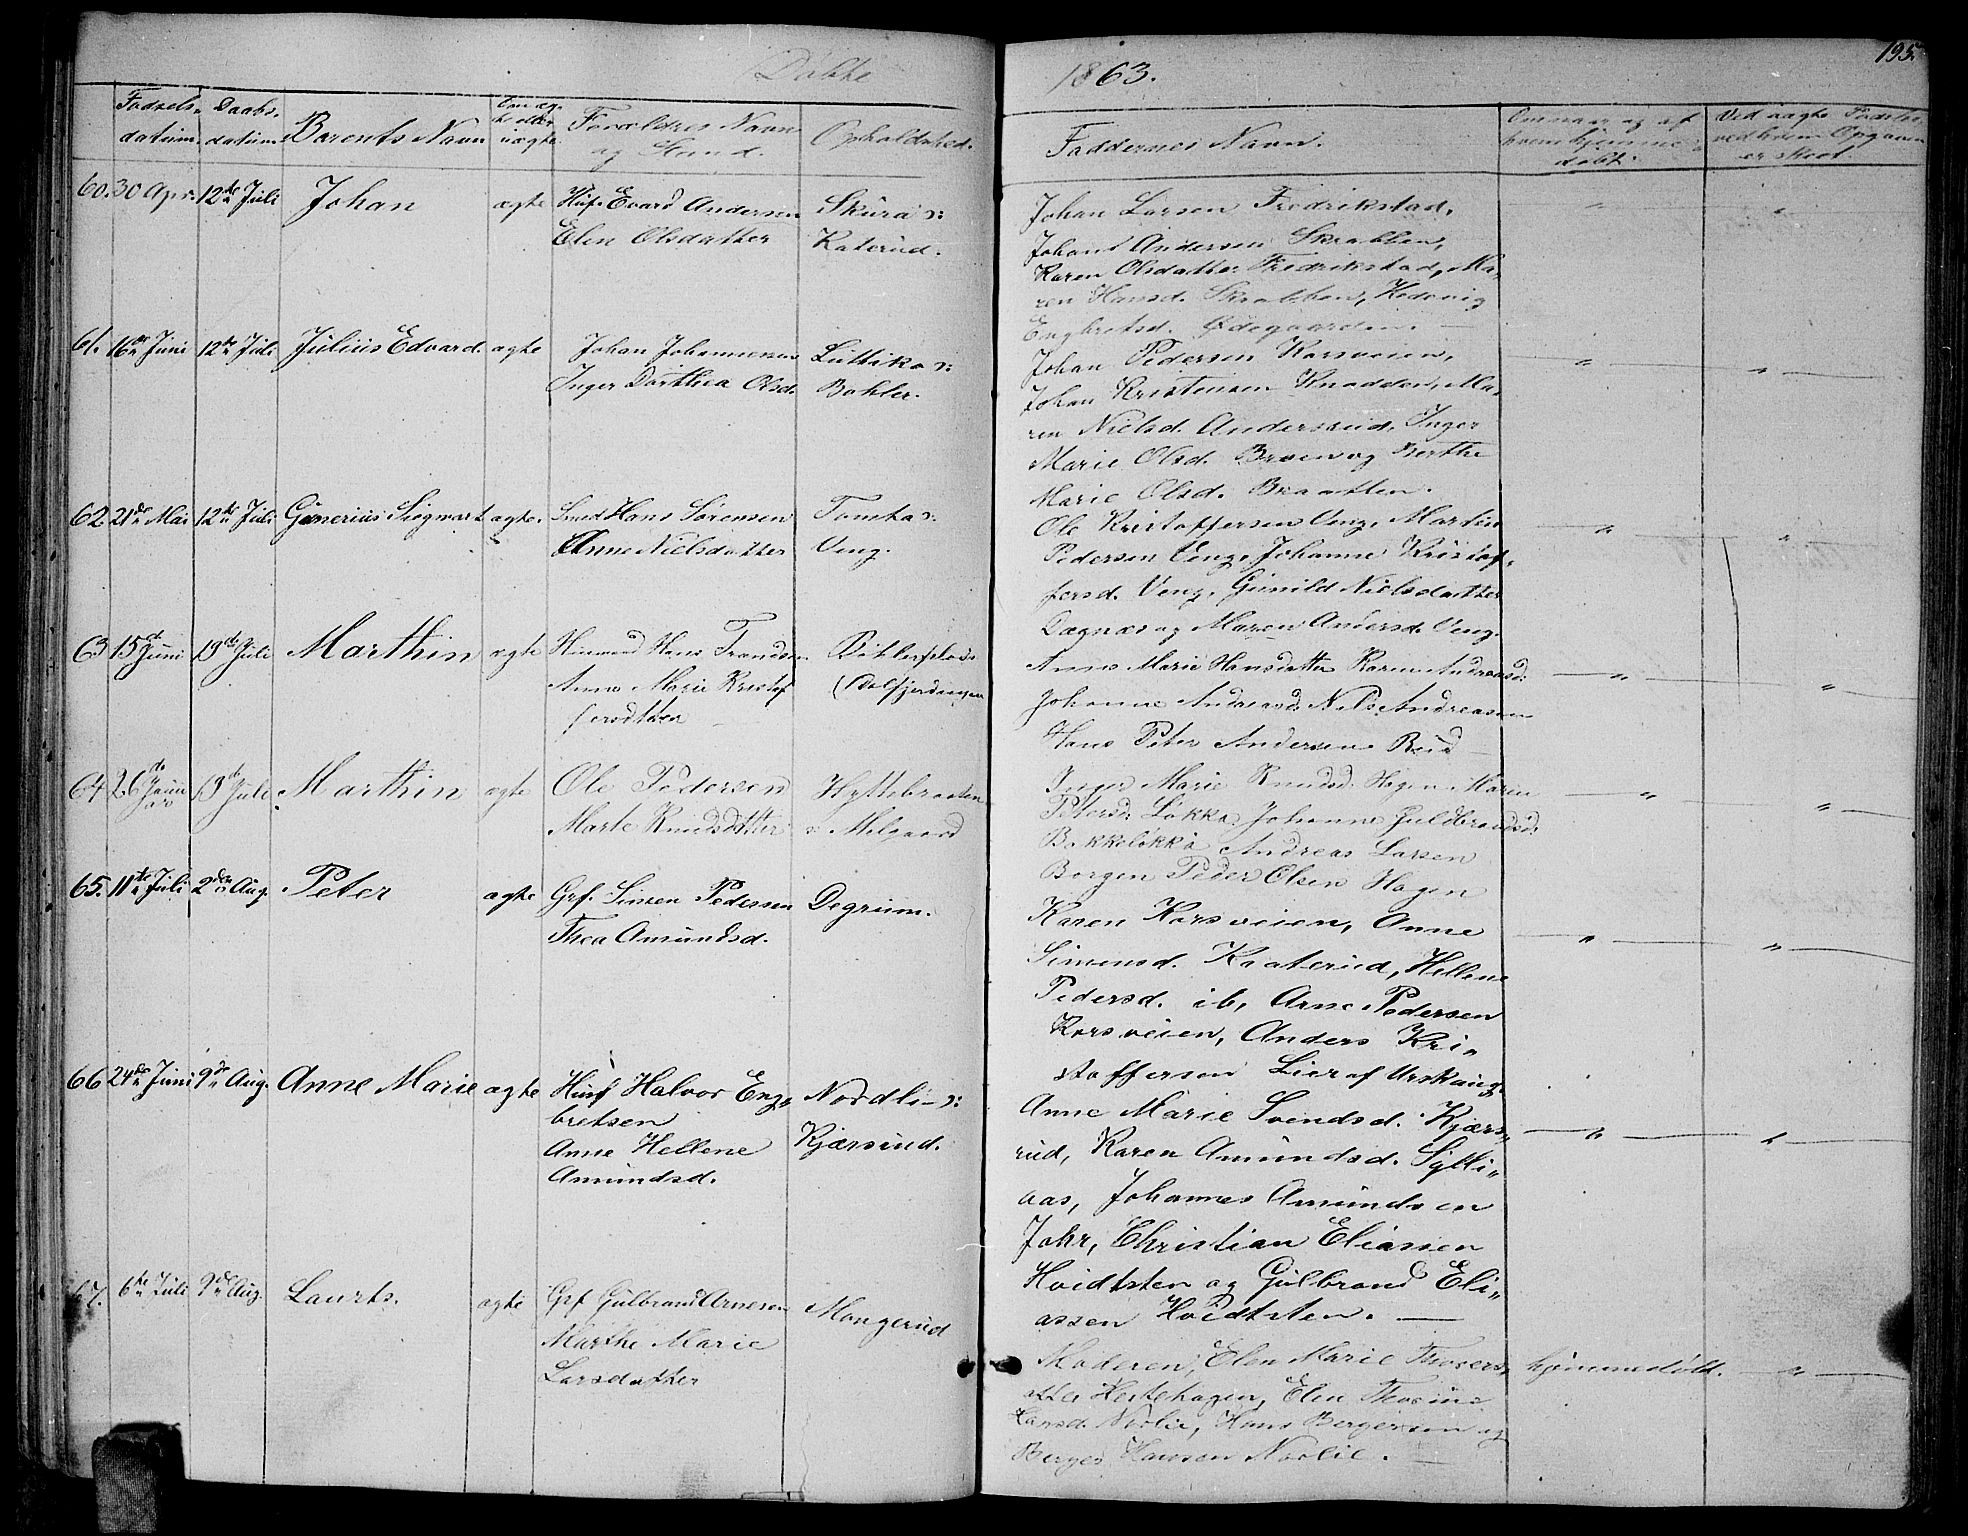 Døbte
1863.
195.
Fødsels-
datum.
Daabs-
datum.
Barnets Navn
Om æg-
te eller
uægte.
Forældres Navn
og Stand.
Opholdssted.
Faddernes Navn.
Om naar og af
hvem hjemme-
døbt.
Ved uægte Fødsler
ved hvem Opgaven
er skeet.
60. 30 Apr. 12te Juli Johan ægte
Husf. Evard Andersen
Elen Olsdatter
Skura ɔ:
Katerud.
Johan Larsen Fredrikstad,
Johans Andersen Skrabben,
Karen Olsdatter Fredrikstad, Ma-
ren Hansd. Skrabben, Hedevig
Engbretsd. Ødegaarden. —
61. 16de Juni 12te Juli Julius Edvard. ægte
Johan Johannesen
Inger Dorthea Olsd.
Luttika ɔ:
Bøhler.
Johan Pedersen Korsveien,
Johan Kristensen Knadden, Ma-
ren Nielsd. Andersrud, Inger
Marie Olsd. Braen og Berthe
Marie Olsd. Braatten.
62. 21de Mai 12te Juli Gunerius Sigvart ægte.
Smed Hans Sørensen
Anne Nielsdatter
Tomta ɔ:
Veng.
Ole Kristoffersen Veng, Martin
Pedersen Veng, Johanne Kristof-
fersd. Veng, Gunild Nielsdatter
Dægnæs og Maren Andersd. Veng.
63 15de Juni 19de Juli Marthin ægte
Huusmand Hans Trondsen
Anne Marie Kristof
fersdtter
Bøhlerplads
(Dalfjerdingen
Anne Marie Hansdatter Karen Andreasd:
Johanne Andreasd: Nils Andreasen
Hans Peter Andersen Rud
64 26de Januar 19de Juli Marthin ægte
Ole Pedersen
Marte Knudsdatter
Hyttebraaten
ɔ: Melgaard
Inger Marie Knudsd: Hagen Maren
Petersd: Løkka Johanne Guldbrandsd:
Bakkeløkka Andreas Larsen
Borgen Peder Olsen Hagen
65. 11te Juli 2den Aug. Peter ægte
Grf. Simen Pedersen
Thea Amundsd.
Degrum.
Karen Korsveien, Anne
Simensd. Kaaterud, Hellene
Pedersd. ib, Arne Pedersen
Korsveien, Anders Kri-
stoffersen Lier af Urskoug.
66 24de Juni 9de Aug. Anne Marie ægte
Husf Halvor Eng-
bretsen
Anne Hellene
Amundsd.
Nordli ɔ:
Kjærsund.
Anne Marie Svendsd. Kjærs-
rud, Karen Amundsd. Sylli-
aas, Johannes Amundsen
Johr, Christian Eliassen
Hvidtsten og Gulbrand Eli-
assen Hvidtsten. —
67. 6te Juli 9de Aug. Laurts. ægte
Grf Gulbrand Arnesen
Marthe Marie
Larsdatter
Mangerud
Moderen, Elen Marie Thoers-
datter Hestehagen, Elen Thorine
Larsd. Norlie, Hans Bergersen og
Berger Hansen Norlie. —
hjemmedøbt.